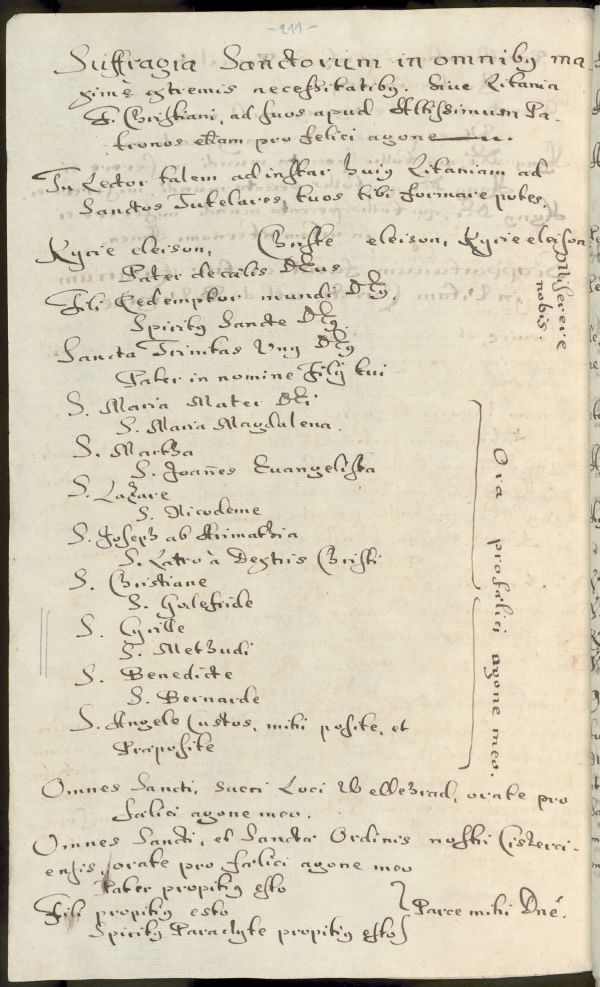 -211-
Suffragia Sanctorum in omnibꝯ ma-
ximè extremis necessitatibꝯ. Sive Litania
F. Christiani, ad suos apud Altissimum Pa-
tronos etiam pro felici agone.
Tu Lector talem ad instar huiꝯ Litaniam ad
Sanctos Tutelares, tuos tibi formare potes.
Kyrie eleison, Christe eleison, Kyrie eleison
Pater de cælis DEus
Fili Redemptor mundi DEꝯ.
Spiritꝯ Sancte DEꝯ.
Sancta Trinitas Unꝯ DEꝯ
Miserere
nobis.
Pater in nomine Filij tui
S. Maria Mater DEi
S. Maria Magdalena.
S. Martha
S. Joan̄es Evangelista
S. Lazare
S. Nicodeme
S. Joseph ab Arimathia
S. Latro à Dextris Christi
S. Christiane
S. Godefride
S. Cyrille
S. Methudi
S. Benedicte
S. Bernarde
S. Angele Custos, mihi posite, et
Præposite
Ora pro fælici agone meo.
Omnes Sancti, sacri Loci Wellehrad, orate pro
fælici agone meo.
Omnes Sancti, et Sanctæ Ordinis nostri Cisterci-
ensis, orate pro fælici agone meo
Pater propitiꝯ esto
Fili propitiꝯ esto
Spiritꝯ Paraclyte propitiꝯ esto
Parce mihi Dnē.